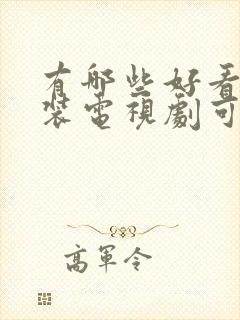 有哪些好看
装電視劇可
高軍令